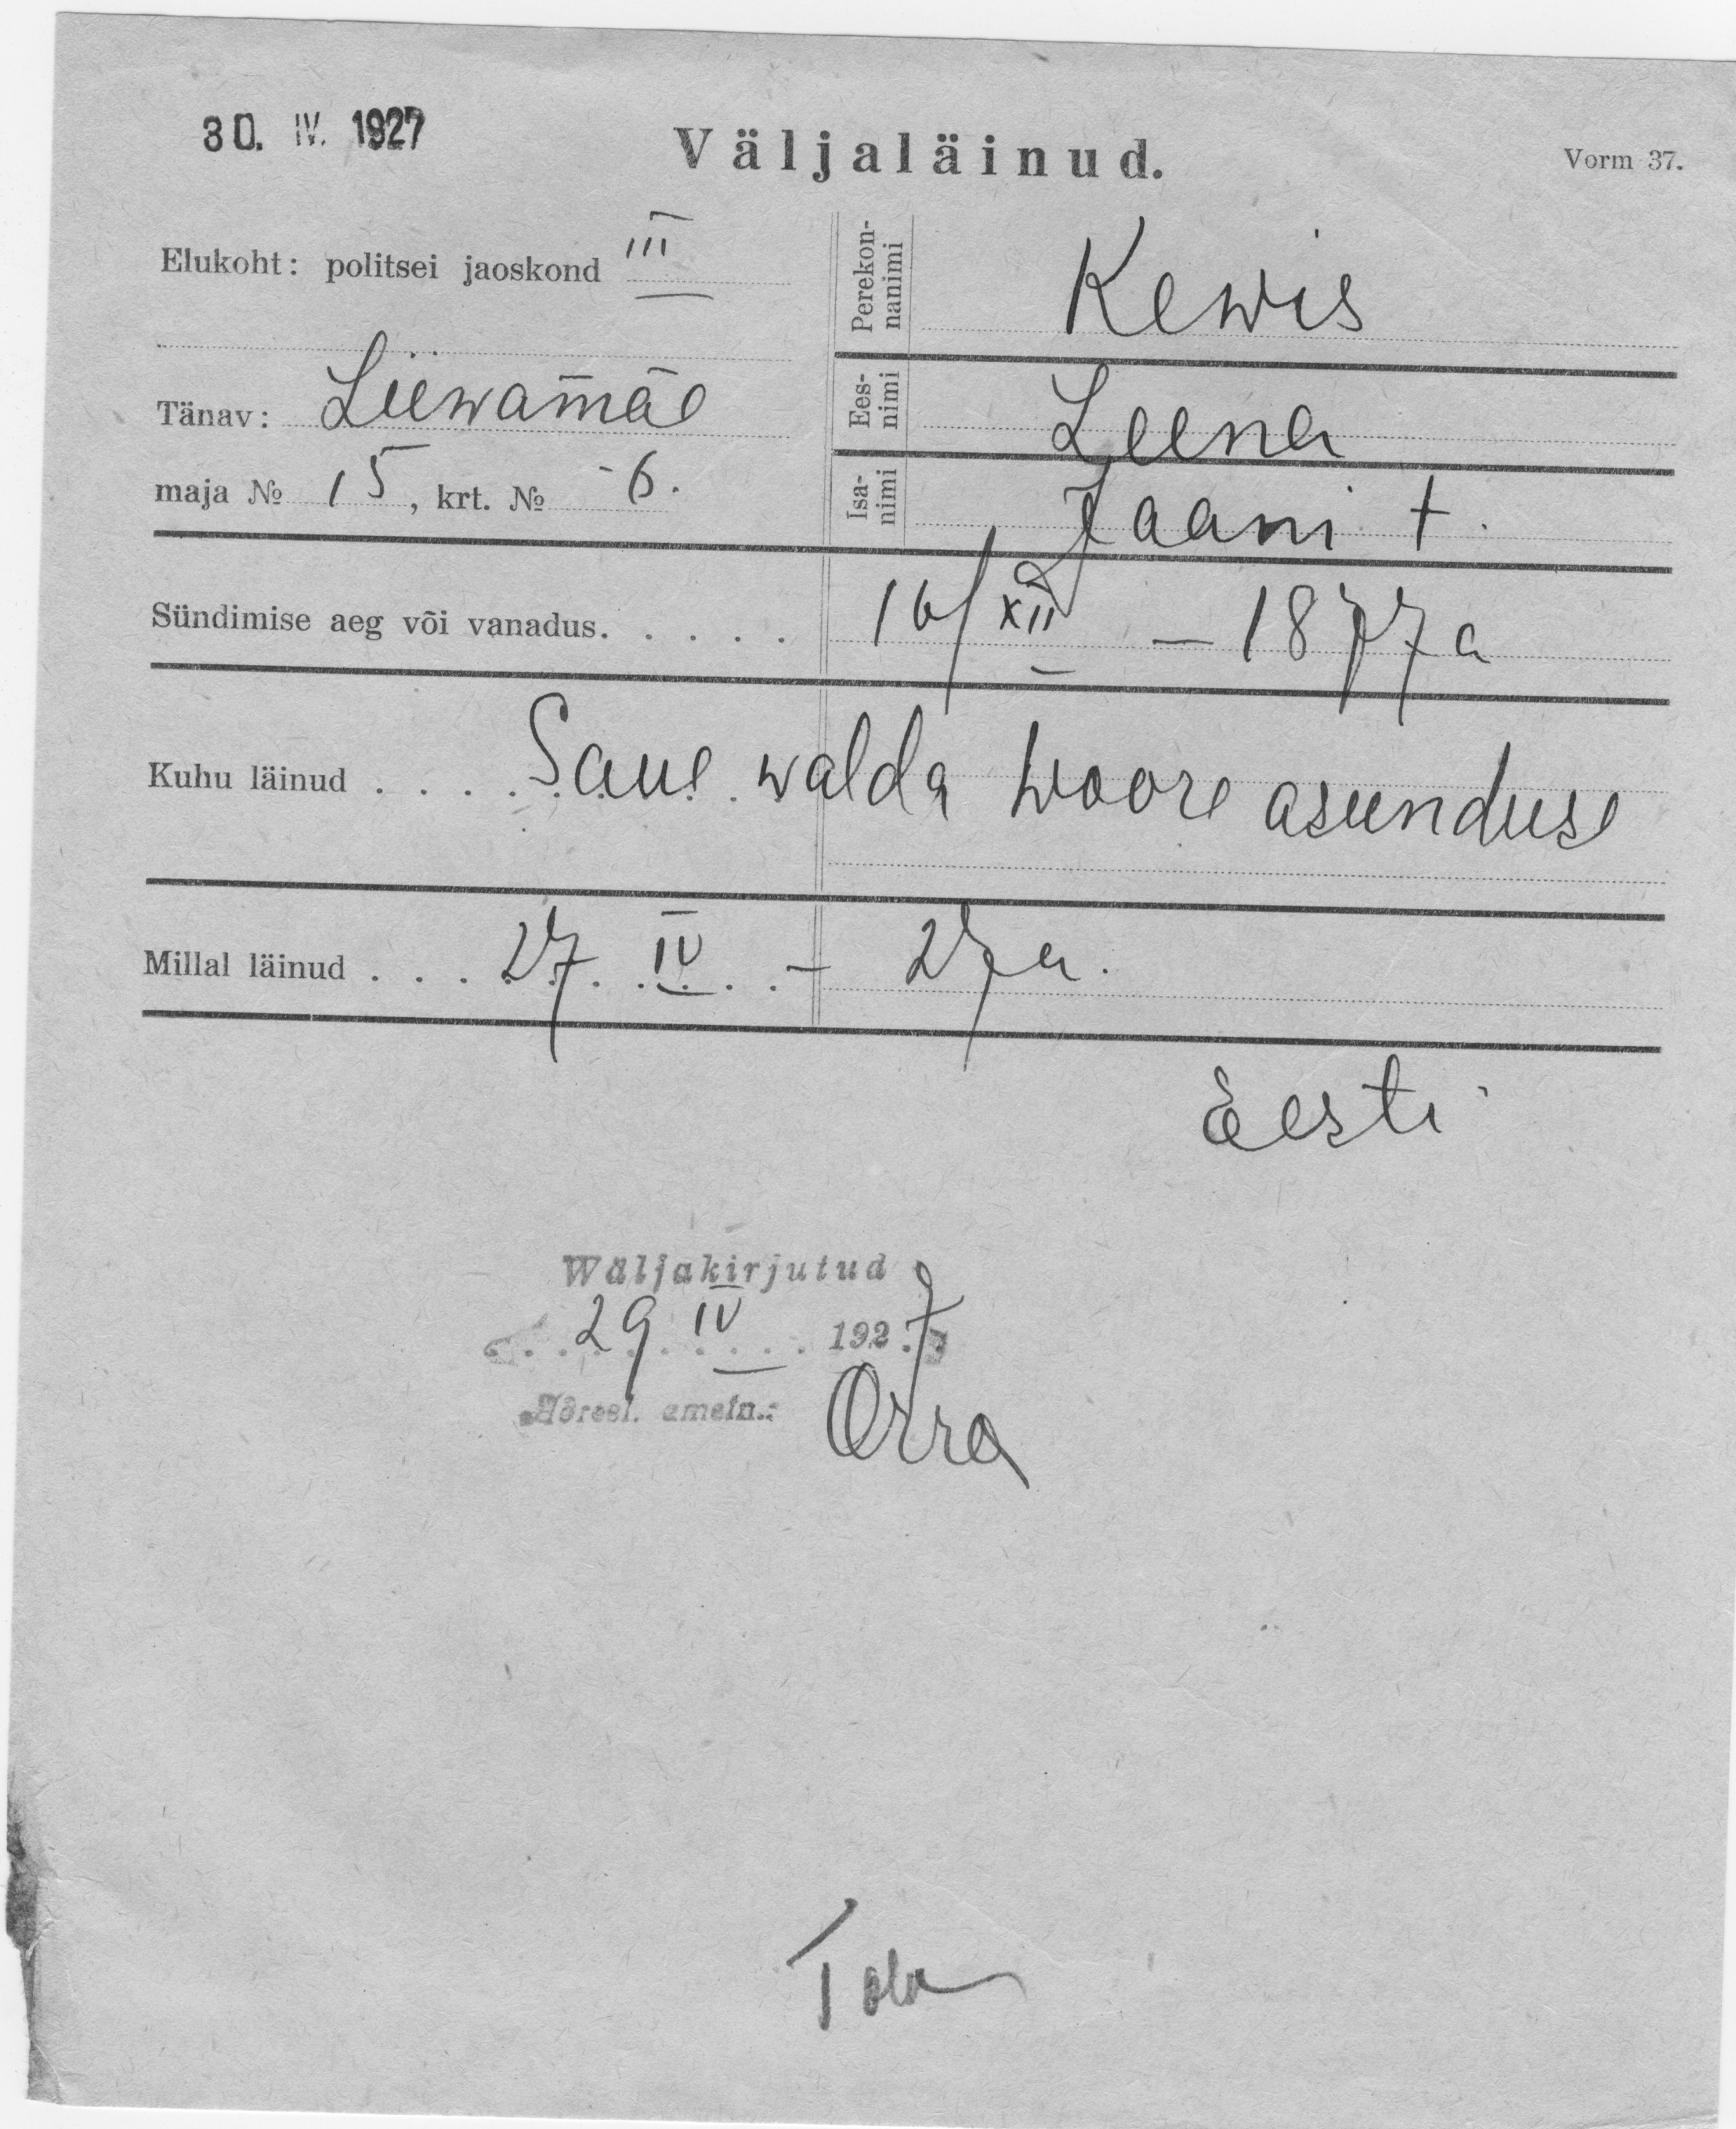 30. IV. 1927
Väljaläinud.
Vorm 37.
Elukoht: politsei jaoskond III
Tänav: Liiwamäe
maja № 15, krt. № -6.
Perekonnanimi Kewis
Eesnimi Leena
Isanimi Jaani †.
Sündimise aeg või vanadus. . . . . 16/XII — 1877 a
Kuhu läinud . . . . Saue walda Woore asunduse
Millal läinud . . . 27. IV - 27 a.
Eesti
Wäljakirjutud
29 IV 1927
Adresl. ametn.: Orra